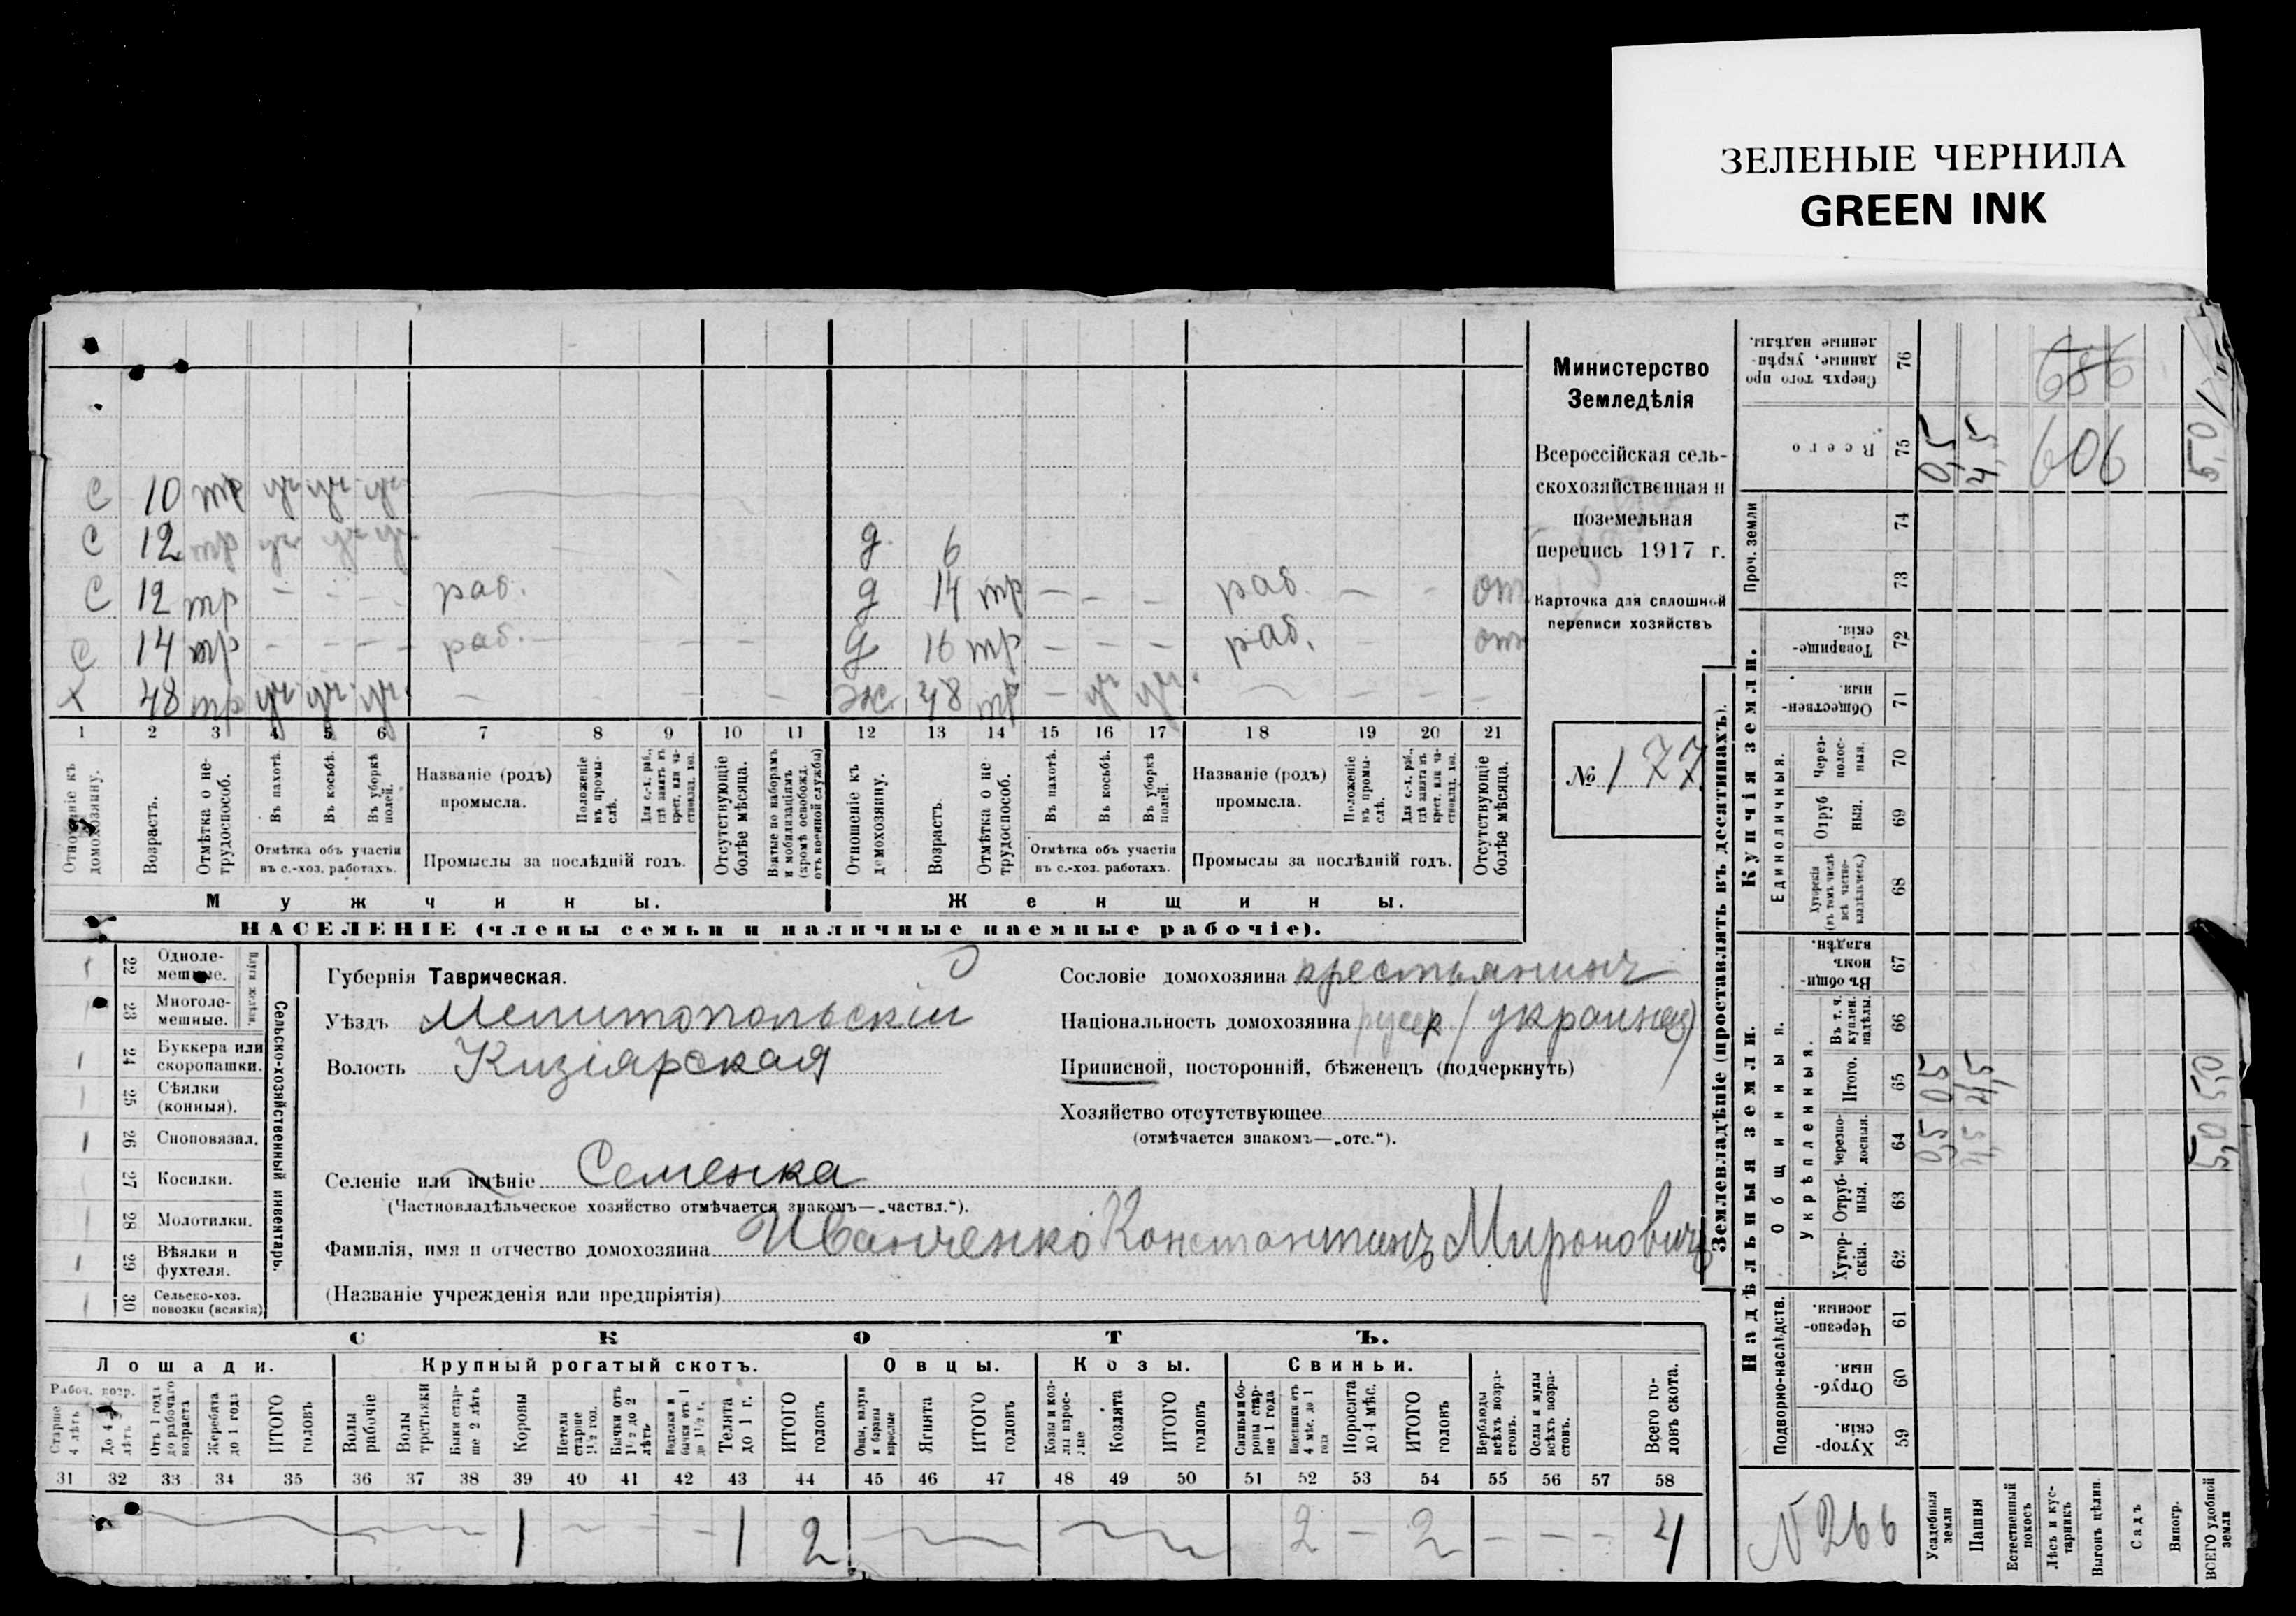 ЗЕЛЕНЫЕ ЧЕРНИЛА
GREEN INK
Министерство
Земледѣлія
Всероссійская сель-
скохозяйственная и
поземельная
перепись 1917 г.
Карточка для сплошной
переписи хозяйствъ
№ 177
с 10 тр уч уч уч
с 12 тр уч уч уч
с 12 тр - - - раб.
с 14 тр - - - раб. - - -
х 48 тр уч. уч. уч. - - - -
д. 6
д 14 тр - - - раб. - - от
д 16 тр - - - раб. - - от
ж. 48 тр - уч уч. - - - -
1 2 3 4 5 6 7 8 9 10 11 12 13 14 15 16 17 18 19 20 21
Отношеніе къ домохозяину.
Возрастъ.
Отмѣтка о не-трудоспособ.
Въ пахотѣ.
Въ косьбѣ.
Въ уборкѣ полей.
Отмѣтка объ участіи
въ с.-хоз. работахъ.
Названіе (родъ)
промысла.
Положеніе въ промы-слѣ.
Для с.-х. раб., гдѣ занятъ въ крест. или ча-стновлад. хоз.
Промыслы за послѣдній годъ.
Отсутствующіе болѣе мѣсяца.
Взятые по наборамъ и мобилизаціямъ (кромѣ освобожд. отъ военной службы)
Отношеніе къ домохозяину.
Возрастъ.
Отмѣтка о не-трудоспособ.
Въ пахотѣ.
Въ косьбѣ.
Въ уборкѣ полей.
Отмѣтка объ участіи
въ с.-хоз. работахъ.
Названіе (родъ)
промысла.
Положеніе въ промы-слѣ.
Для с.-х. раб., гдѣ занята въ крест. или ча-стновлад. хоз.
Промыслы за послѣдній годъ.
Отсутствующіе болѣе мѣсяца.
Мужчины.
Женщины.
НАСЕЛЕНІЕ (члены семьи и наличные наемные рабочіе).
22 Одноле-мешные.
23 Многоле-мешные.
Плуги желѣзн.
1 24 Буккера или скоропашки.
25 Сѣялки (конныя).
1 26 Сноповязал.
27 Косилки.
28 Молотилки.
1 29 Вѣялки и фухтеля.
1 30 Сельско-хоз. повозки (всякія)
Сельско-хозяйственный инвентарь.
Губернія Таврическая.
Уѣздъ Мелитопольскій
Волость Кизіярская
Селеніе или имѣніе Семенка
(Частновладѣльческое хозяйство отмѣчается знакомъ—„частвл.“).
Фамилія, имя и отчество домохозяина Иванченко Константинъ Мироновичъ
(Названіе учрежденія или предпріятія)
Сословіе домохозяина крестьянинъ
Національность домохозяина русск (украинец)
Приписной, посторонній, бѣженецъ (подчеркнуть)
Хозяйство отсутствующее
(отмѣчается знакомъ—„отс.“).
СКОТЪ.
Лошади.
Крупный рогатый скотъ.
Овцы.
Козы.
Свиньи.
Рабоч. возр.
Старше 4 лѣтъ
До 4-хъ лѣтъ
Отъ 1 года до рабочаго возраста
Жеребята до 1 года
ИТОГО головъ
Волы рабочіе
Волы третьяки
Быки стар-ше 2 лѣтъ
Коровы
Нетели старше 1½ год.
Бычки отъ 1½ до 2 лѣтъ
Телята до 1 г.
ИТОГО головъ
Овцы, валухи и бараны взрослые
Ягнята
ИТОГО головъ
Козы и коз-лы взрос-лые
Козлята
ИТОГО головъ
Свиньи и бо-ровы стар-ше 1 года
Подсвинки отъ 4 мѣс. до 1 года
Поросята до 4 мѣс.
ИТОГО головъ
Верблюды всѣхъ возра-стовъ.
Ослы и мулы всѣхъ возра-стовъ.
Всего го-ловъ скота.
31 32 33 34 35 36 37 38 39 40 41 42 43 44 45 46 47 48 49 50 51 52 53 54 55 56 57 58
1 - - - 1 2 2 - 2 - - - 4
Землевладѣніе (проставлять въ десятинахъ).
Надѣльныя земли.
Купчія земли.
Проч. земли
Подворно-наслѣдств.
Общинныя.
Укрѣпленныя.
Единоличныя.
Сверхъ того про-данные, укрѣп-ленные надѣлы. 76
Всего 75 0,5 4,5 606 5,0
74
73
Товарище-скія. 72
Обществен-ныя. 71
Через-полос-ныя. 70
Отруб-ныя. 69
Хуторскія (въ томъ числѣ всѣ частно-владѣльческ.) 68
Въ общи-номъ владѣн. 67
Въ т. ч. куплен. надѣлы. 66
Итого. 65 0,5 4,5 5,0
Черезпо-лосныя. 64 0,5 4,5 5,0
Отруб-ныя. 63
Хутор-скія. 62
Черезпо-лосныя. 61
Отруб-ныя. 60
Хутор-скія. 59
N 266
Усадебныя земли
Пашня
Естественный покосъ
Лѣсъ и кус-тарникъ
Выгонъ цѣлин.
Садъ
Виногр.
ВСЕГО удобной земли